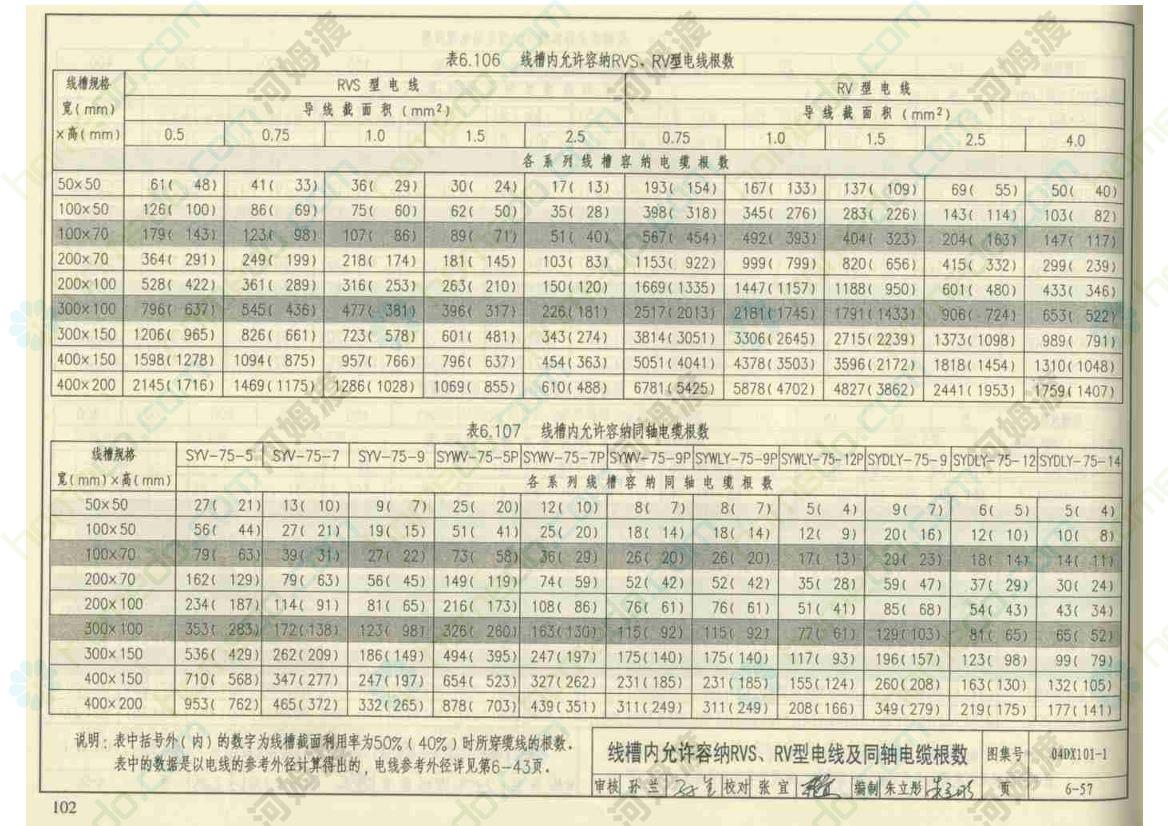 表6.106 线槽内允许容纳RVS、RV型电线根数
线槽规格 宽(mm) ×高(mm) RVS 型 电 线 RV 型 电 线
导 线 截 面 积 (mm²) 导 线 截 面 积 (mm²)
0.5 0.75 1.0 1.5 2.5 0.75 1.0 1.5 2.5 4.0
各 系 列 线 槽 容 纳 电 缆 根 数
50×50 61( 48) 41( 33) 36( 29) 30( 24) 17( 13) 193( 154) 167( 133) 137( 109) 69( 55) 50( 40)
100×50 126( 100) 86( 69) 75( 60) 62( 50) 35( 28) 398( 318) 345( 276) 283( 226) 143( 114) 103( 82)
100×70 179( 143) 123( 98) 107( 86) 89( 71) 51( 40) 567( 454) 492( 393) 404( 323) 204( 163) 147( 117)
200×70 364( 291) 249( 199) 218( 174) 181( 145) 103( 83) 1153( 922) 999( 799) 820( 656) 415( 332) 299( 239)
200×100 528( 422) 361( 289) 316( 253) 263( 210) 150(120) 1669(1335) 1447(1157) 1188( 950) 601( 480) 433( 346)
300×100 796( 637) 545( 436) 477( 381) 396( 317) 226(181) 2517(2013) 2181(1745) 1791(1433) 906( 724) 653( 522)
300×150 1206( 965) 826( 661) 723( 578) 601( 481) 343(274) 3814(3051) 3306(2645) 2715(2239) 1373(1098) 989( 791)
400×150 1598(1278) 1094( 875) 957( 766) 796( 637) 454(363) 5051(4041) 4378(3503) 3596(2172) 1818(1454) 1310(1048)
400×200 2145(1716) 1469(1175) 1286(1028) 1069( 855) 610(488) 6781(5425) 5878(4702) 4827(3862) 2441(1953) 1759(1407)
表6.107 线槽内允许容纳同轴电缆根数
线槽规格 宽(mm)×高(mm) SYV-75-5 SYV-75-7 SYV-75-9 SYWV-75-5P SYWV-75-7P SYWV-75-9P SYWLY-75-9P SYWLY-75-12P SYDLY-75-9 SYDLY-75-12 SYDLY-75-14
各 系 列 线 槽 容 纳 同 轴 电 缆 根 数
50×50 27( 21) 13( 10) 9( 7) 25( 20) 12( 10) 8( 7) 8( 7) 5( 4) 9( 7) 6( 5) 5( 4)
100×50 56( 44) 27( 21) 19( 15) 51( 41) 25( 20) 18( 14) 18( 14) 12( 9) 20( 16) 12( 10) 10( 8)
100×70 79( 63) 39( 31) 27( 22) 73( 58) 36( 29) 26( 20) 26( 20) 17( 13) 29( 23) 18( 14) 14( 11)
200×70 162( 129) 79( 63) 56( 45) 149( 119) 74( 59) 52( 42) 52( 42) 35( 28) 59( 47) 37( 29) 30( 24)
200×100 234( 187) 114( 91) 81( 65) 216( 173) 108( 86) 76( 61) 76( 61) 51( 41) 85( 68) 54( 43) 43( 34)
300×100 353( 283) 172(138) 123( 98) 326( 260) 163(130) 115( 92) 115( 92) 77( 61) 129(103) 81( 65) 65( 52)
300×150 536( 429) 262(209) 186(149) 494( 395) 247(197) 175(140) 175(140) 117( 93) 196(157) 123( 98) 99( 79)
400×150 710( 568) 347(277) 247(197) 654( 523) 327(262) 231(185) 231(185) 155(124) 260(208) 163(130) 132(105)
400×200 953( 762) 465(372) 332(265) 878( 703) 439(351) 311(249) 311(249) 208(166) 349(279) 219(175) 177(141)
说明：表中括号外(内)的数字为线槽截面利用率为50%(40%)时所穿缆线的根数。
表中的数据是以电线的参考外径计算得出的，电线参考外径详见第6-43页。
线槽内允许容纳RVS、RV型电线及同轴电缆根数 图集号 04DX101-1
审核 孙 兰 校对 张 宜 编制 朱立彤 页 6-57
102